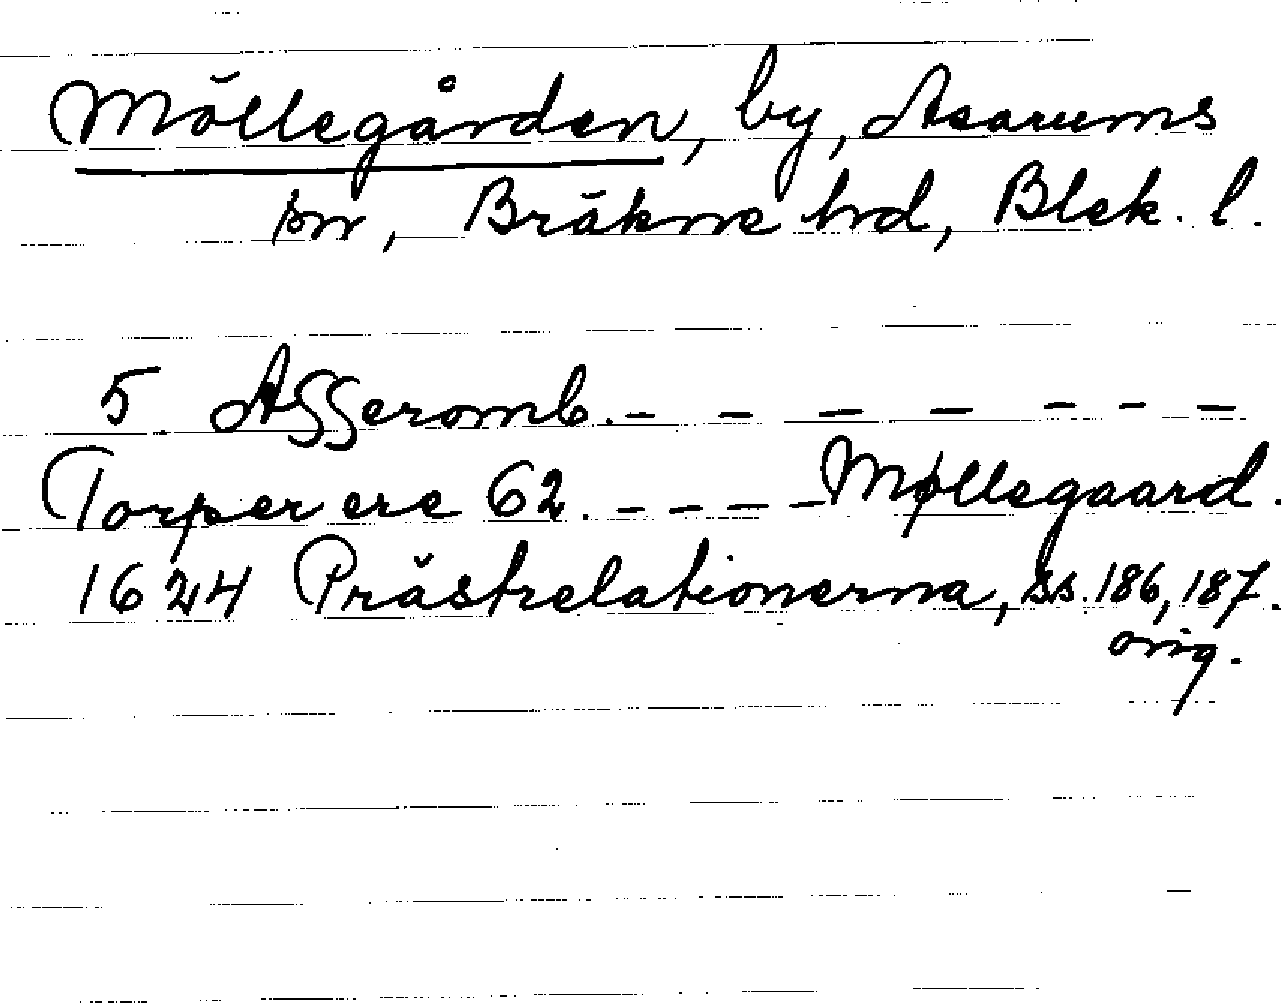 Möllegården, by, Asarums
sn, Bräkne hrd, Blek. l.
5 Affleromb. - - - - - - -
Torper ere 62. - - - - Møllegaard.
1624 Prästrelationerna, ss. 186, 187.
orig.